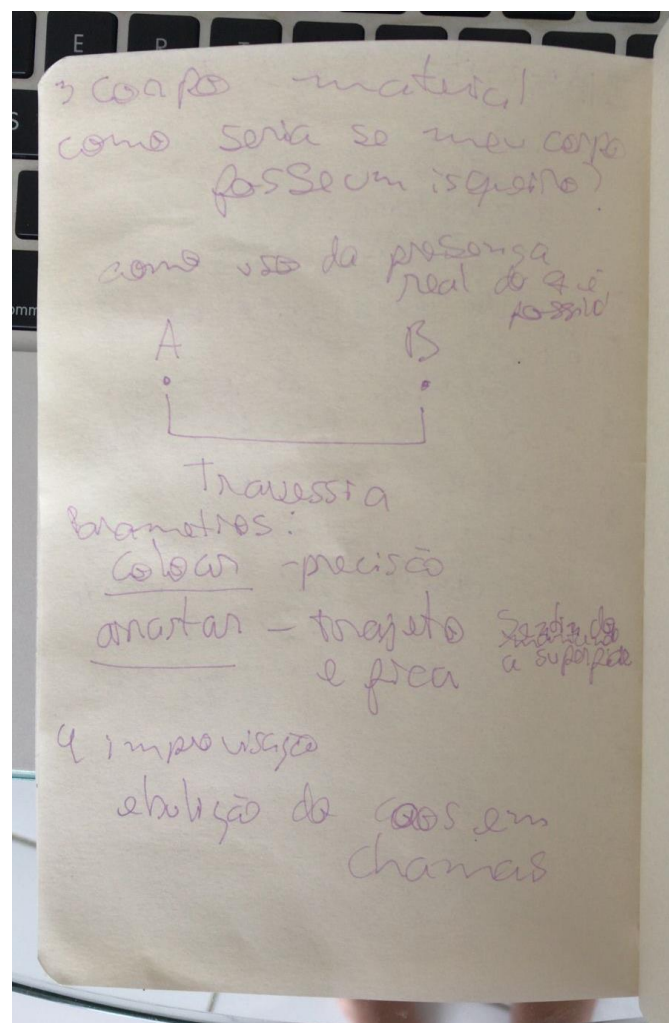 E
3 corpo material
como seria se meu corpo
fosse um isqueiro?
como uso da presença
real do q é
possível
A B
Travessia
Parametros:
colocar - precisão
arrastar - trajeto
e fica
a superfície
4 improvisação
ebulição do caos em
chamas